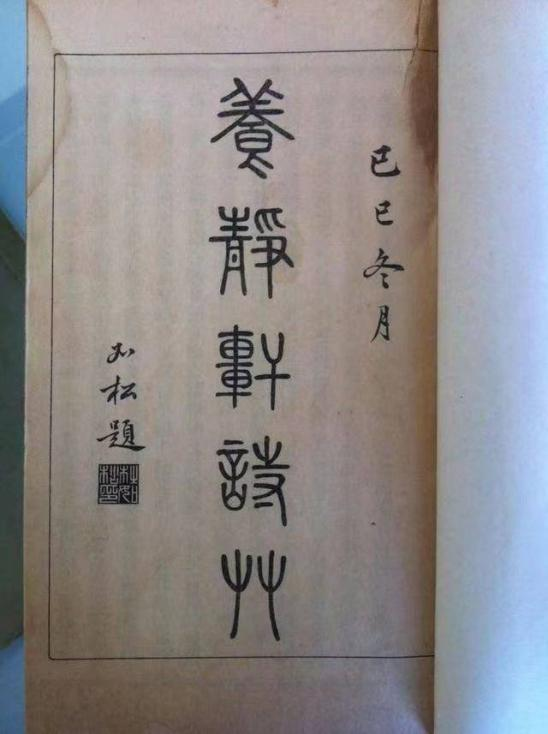 己巳冬月
養靜軒詩艸
如松題